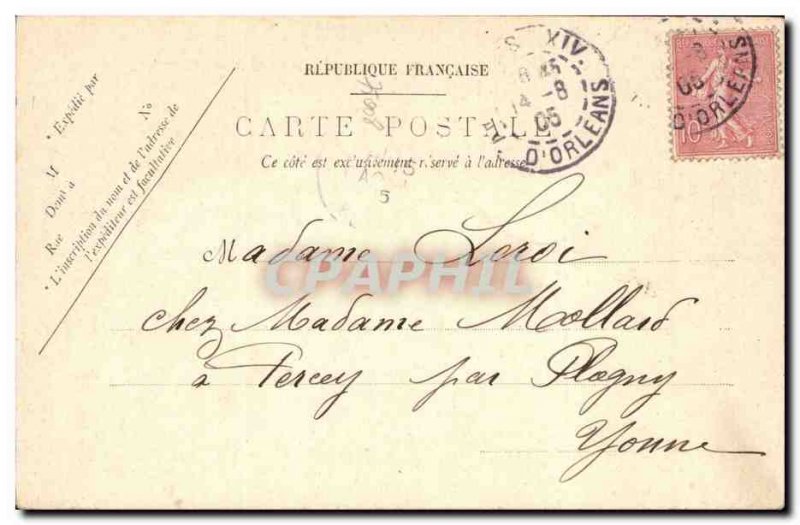 RÉPUBLIQUE FRANÇAISE
CARTE POSTALE
Ce côté est exclusivement réservé à l'adresse
* Expédié par
M
Demt à
Rue No
* L'inscription du nom et de l'adresse de
l'expéditeur est facultative
XIV
14-8
05
D'ORLEANS
05
D'ORLEANS
10
5
CPAPHIL
Madame Leroi
chez Madame Mollard
à Percey par Flogny
Yonne